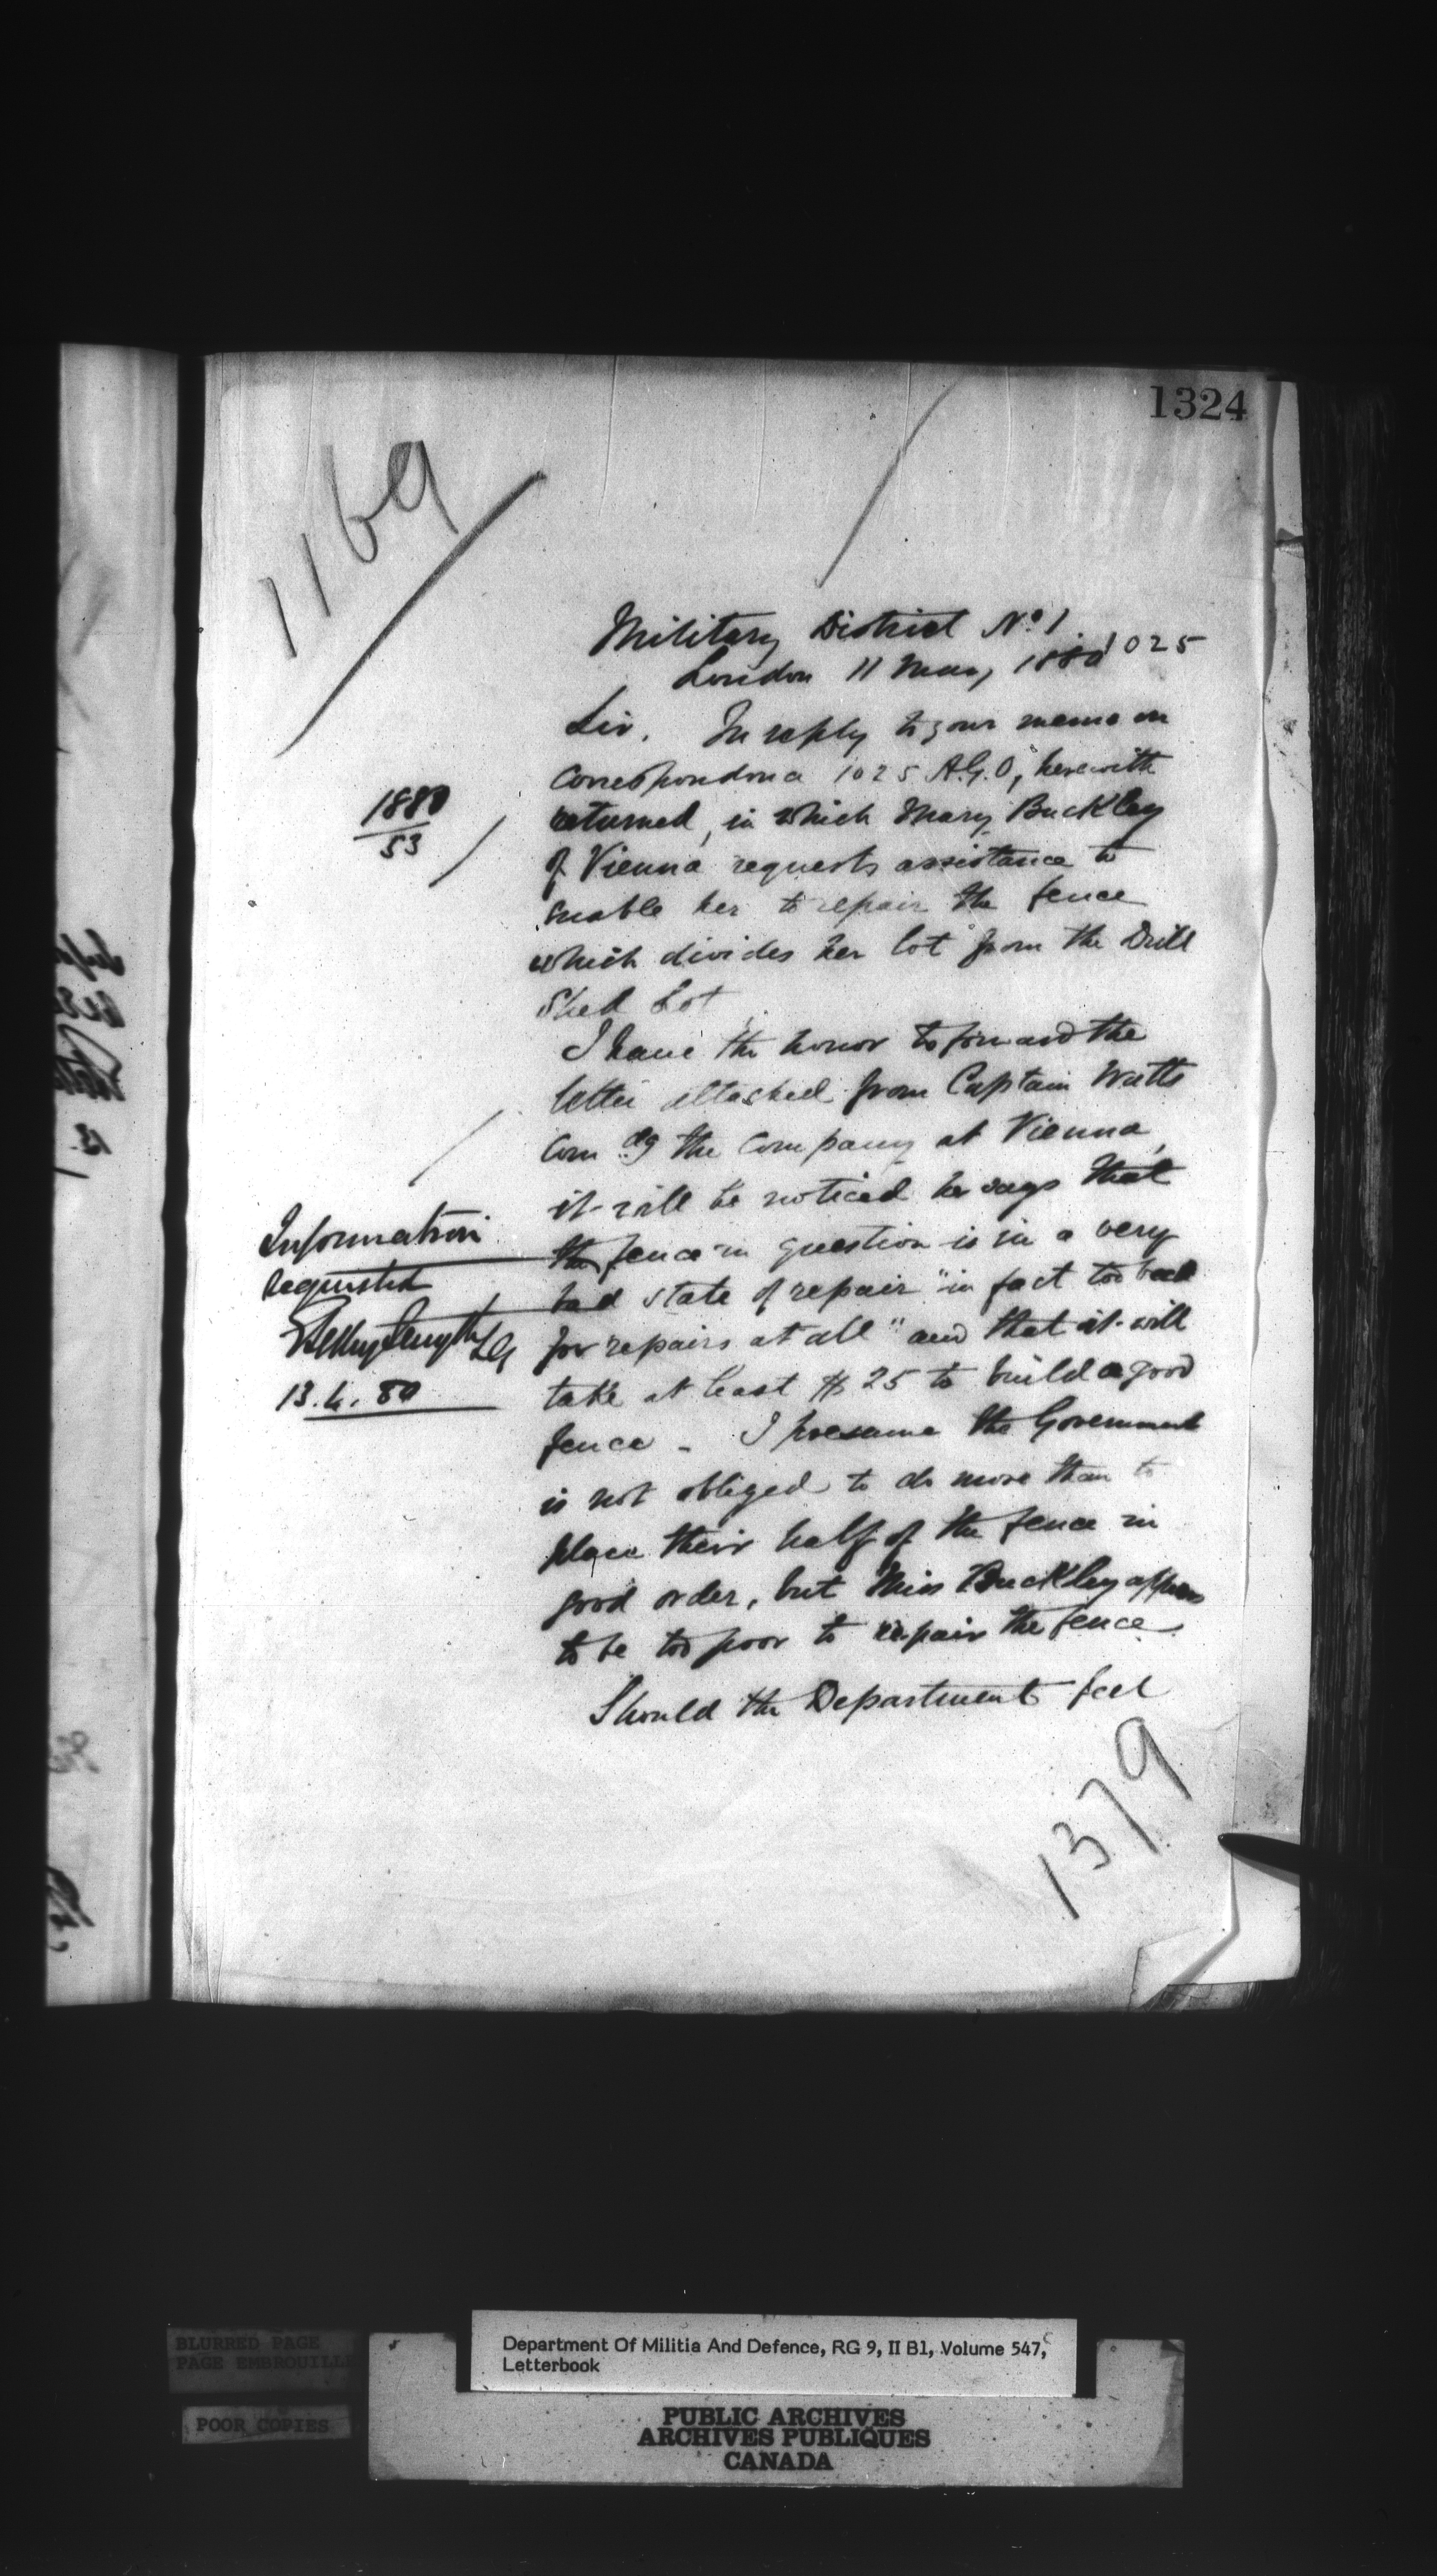 1324
1169
Military District No. 1
1025
London 11 May, 1880
Sir. In reply to your memo on
Correspondence 1025 A.G.O, herewith
returned, in which Mary Buckley
of Vienna requests assistance to
enable her to repair the fence
which divides her lot from the Drill
Shed Lot
1880
53
I have the honor to forward the
letter attached from Captain Watts
Com dg the Company at Vienna,
it will be noticed he says that
the fence in question is in a very
bad state of repair "in fact too bad
for repairs at all" and that it will
take at least $25 to build a good
fence - I presume the Government
is not obliged to do more than to
place their half of the fence in
good order, but Miss Buckley appears
to be too poor to repair the fence.
Should the Department feel
Information
requested
13.4.80
1379
BLURRED PAGE
PAGE EMBROUILLE
POOR COPIES
Department Of Militia And Defence, RG 9, II B1, Volume 547,
Letterbook
PUBLIC ARCHIVES
ARCHIVES PUBLIQUES
CANADA